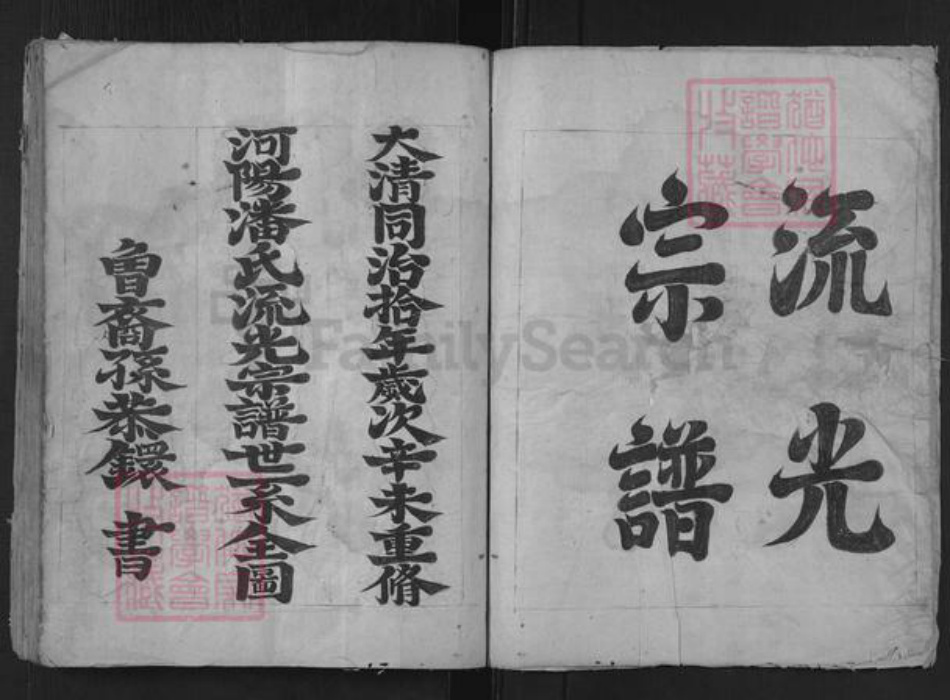 流光
宗譜
大清同治拾年歲次辛未重脩
河陽潘氏流光宗譜世系全圖
裔孫恭鐶 書
FamilySearch